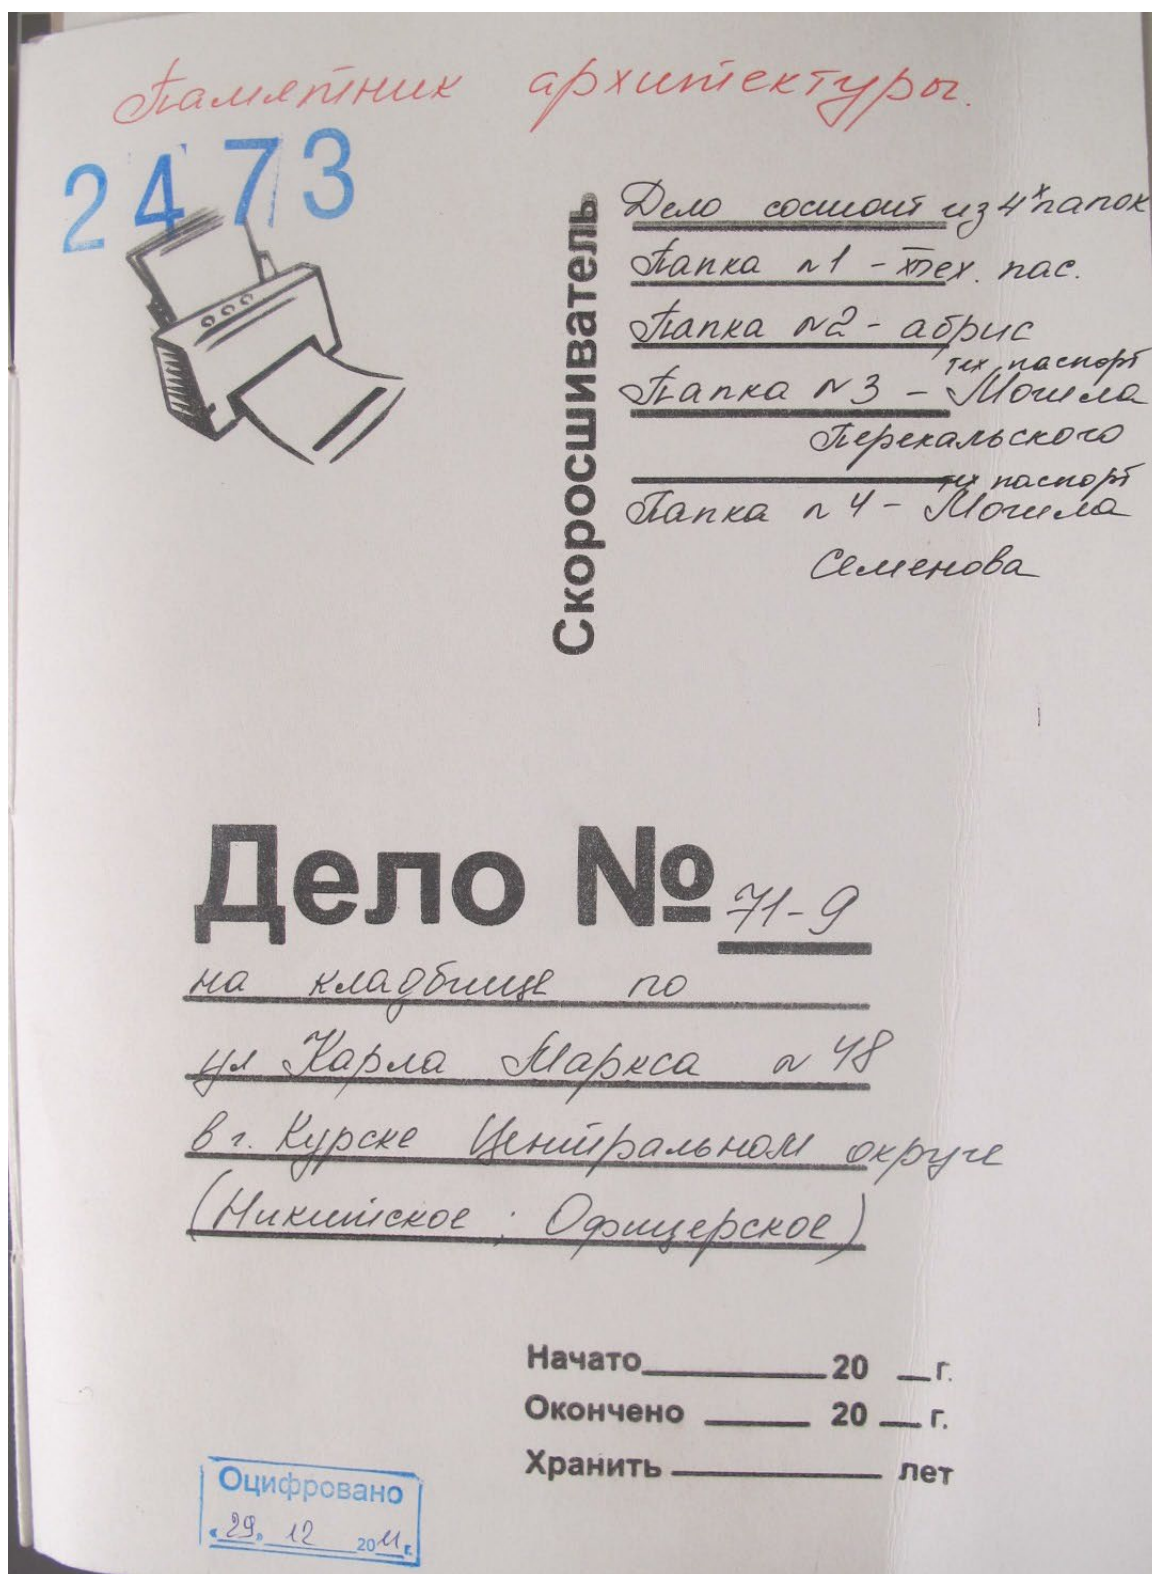 Памятник архитектуры.
2473
Скоросшиватель
Дело состоит из 4х папок
Папка №1 - тех. пас.
Папка №2 - абрис
тех паспорт
Папка №3 - Могила
Перекальского
тех паспорт
Папка №4 - Могила
Семенова
Дело № 71-9
на кладбище по
ул Карла Маркса №48
в г. Курске Центральном округе
(Никитское ; Офицерское)
Начато 20 г.
Окончено 20 г.
Хранить лет
Оцифровано
«29» 12 2011 г.